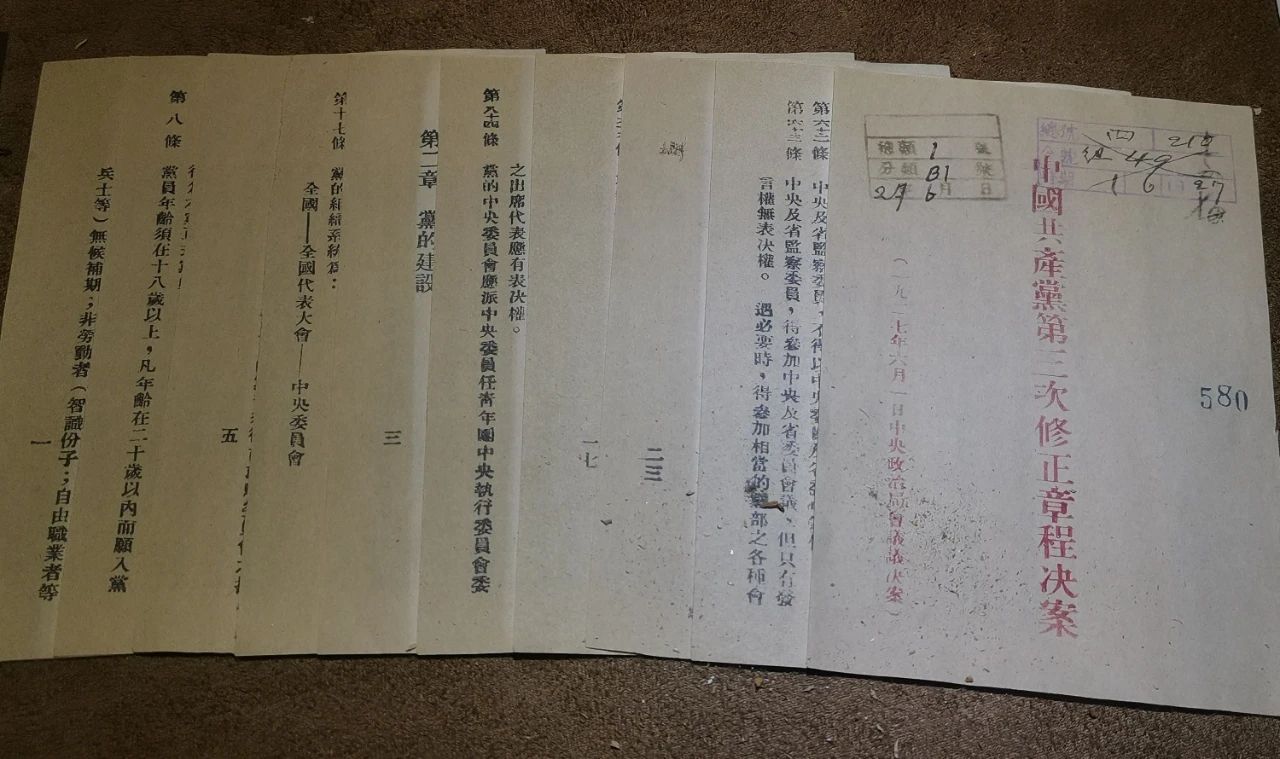 580
中國共產黨第三次修正章程决案
(一九二七年六月一日中央政治局會議議决案)
總號
四
219
組
49
27
1
6
總類 1 號
分類 B1 號
27 年 6 月 日
第六十二條 中央及省監察委員,不得以中央委員
第六十三條 中央及省監察委員,得參加中央及省委員會議,但只有發
言權無表决權。 遇必要時,得參加相當的黨部之各種會
二三
一七
之出席代表應有表决權。
第八十四條 黨的中央委員會應派中央委員任青年團中央執行委員會委
第二章 黨的建設
三
第十七條 黨的組織系統爲:
全國——全國代表大會——中央委員會
五
第八條 黨員年齡須在十八歲以上,凡年齡在二十歲以內而願入黨
兵士等)無候補期;非勞動者(智識份子;自由職業者等
一